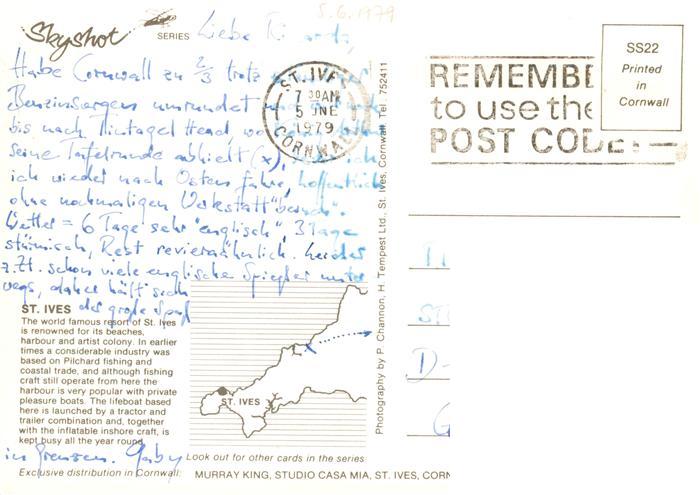 5.6.1979
Skyshot
SERIES
Liebe
Habe Cornwall zu 2/3 trotz
Benzinsorgen umrundet
bis nach Tintagel Head, wo
seine Tafelrunde abhielt (x),
ich wieder nach Osten fahre, hoffentlich
ohne nochmaligen Werkstatt"besuch".
Wetter = 6 Tage sehr "englisch", 3 Tage
stürmisch, Rest
z. Zt. schon viele englische Spießer unter
wegs, daher hält sich
der große Spaß
in Grenzen. Gaby
ST. IVES
7 30AM
5 JNE
1979
CORNWALL
ST. IVES
The world famous resort of St. Ives
is renowned for its beaches,
harbour and artist colony. In earlier
times a considerable industry was
based on Pilchard fishing and
coastal trade, and although fishing
craft still operate from here the
harbour is very popular with private
pleasure boats. The lifeboat based
here is launched by a tractor and
trailer combination and, together
with the inflatable inshore craft, is
kept busy all the year round.
ST. IVES
x
Look out for other cards in the series
Exclusive distribution in Cornwall: MURRAY KING, STUDIO CASA MIA, ST. IVES, CORN
Photography by P. Channon, H. Tempest Ltd., St. Ives, Cornwall. Tel. 752411
REMEMBE
to use the
POST CODE
SS22
Printed
in
Cornwall
D-